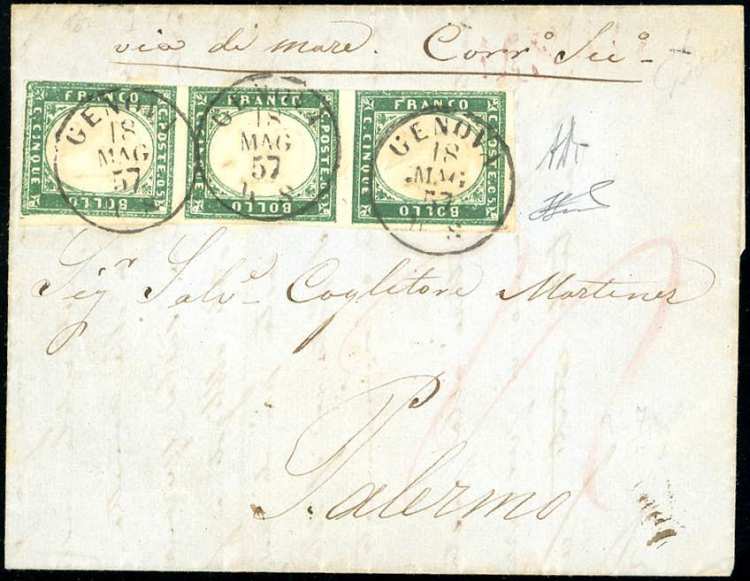 via di mare. Corr.º Sic.º
FRANCO C. POSTE C5 BOLLO C. CINQUE
FRANCO C. POSTE C5 BOLLO C. CINQUE
FRANCO C. POSTE C5 BOLLO C. CINQUE
GENOVA 18 MAG 57
GENOVA 18 MAG 57
GENOVA 18 MAG 57
Sig.r Salv.e Coglitore Martinez
Palermo